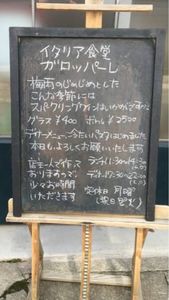 イタリア食堂
ガロッパーレ
梅雨のじめじめとした
こんな季節には
スパークリングワインはいかがですか
グラス ¥400 ボトル ¥2500
ディナーメニュー、冷たいパスタはじめました
本日もよろしくお願いいたします
店主一人で作って
おりますので
少々お時間
いただきます
ランチ 11:30~14:30
ディナー 17:30~22:00
定休日 月曜